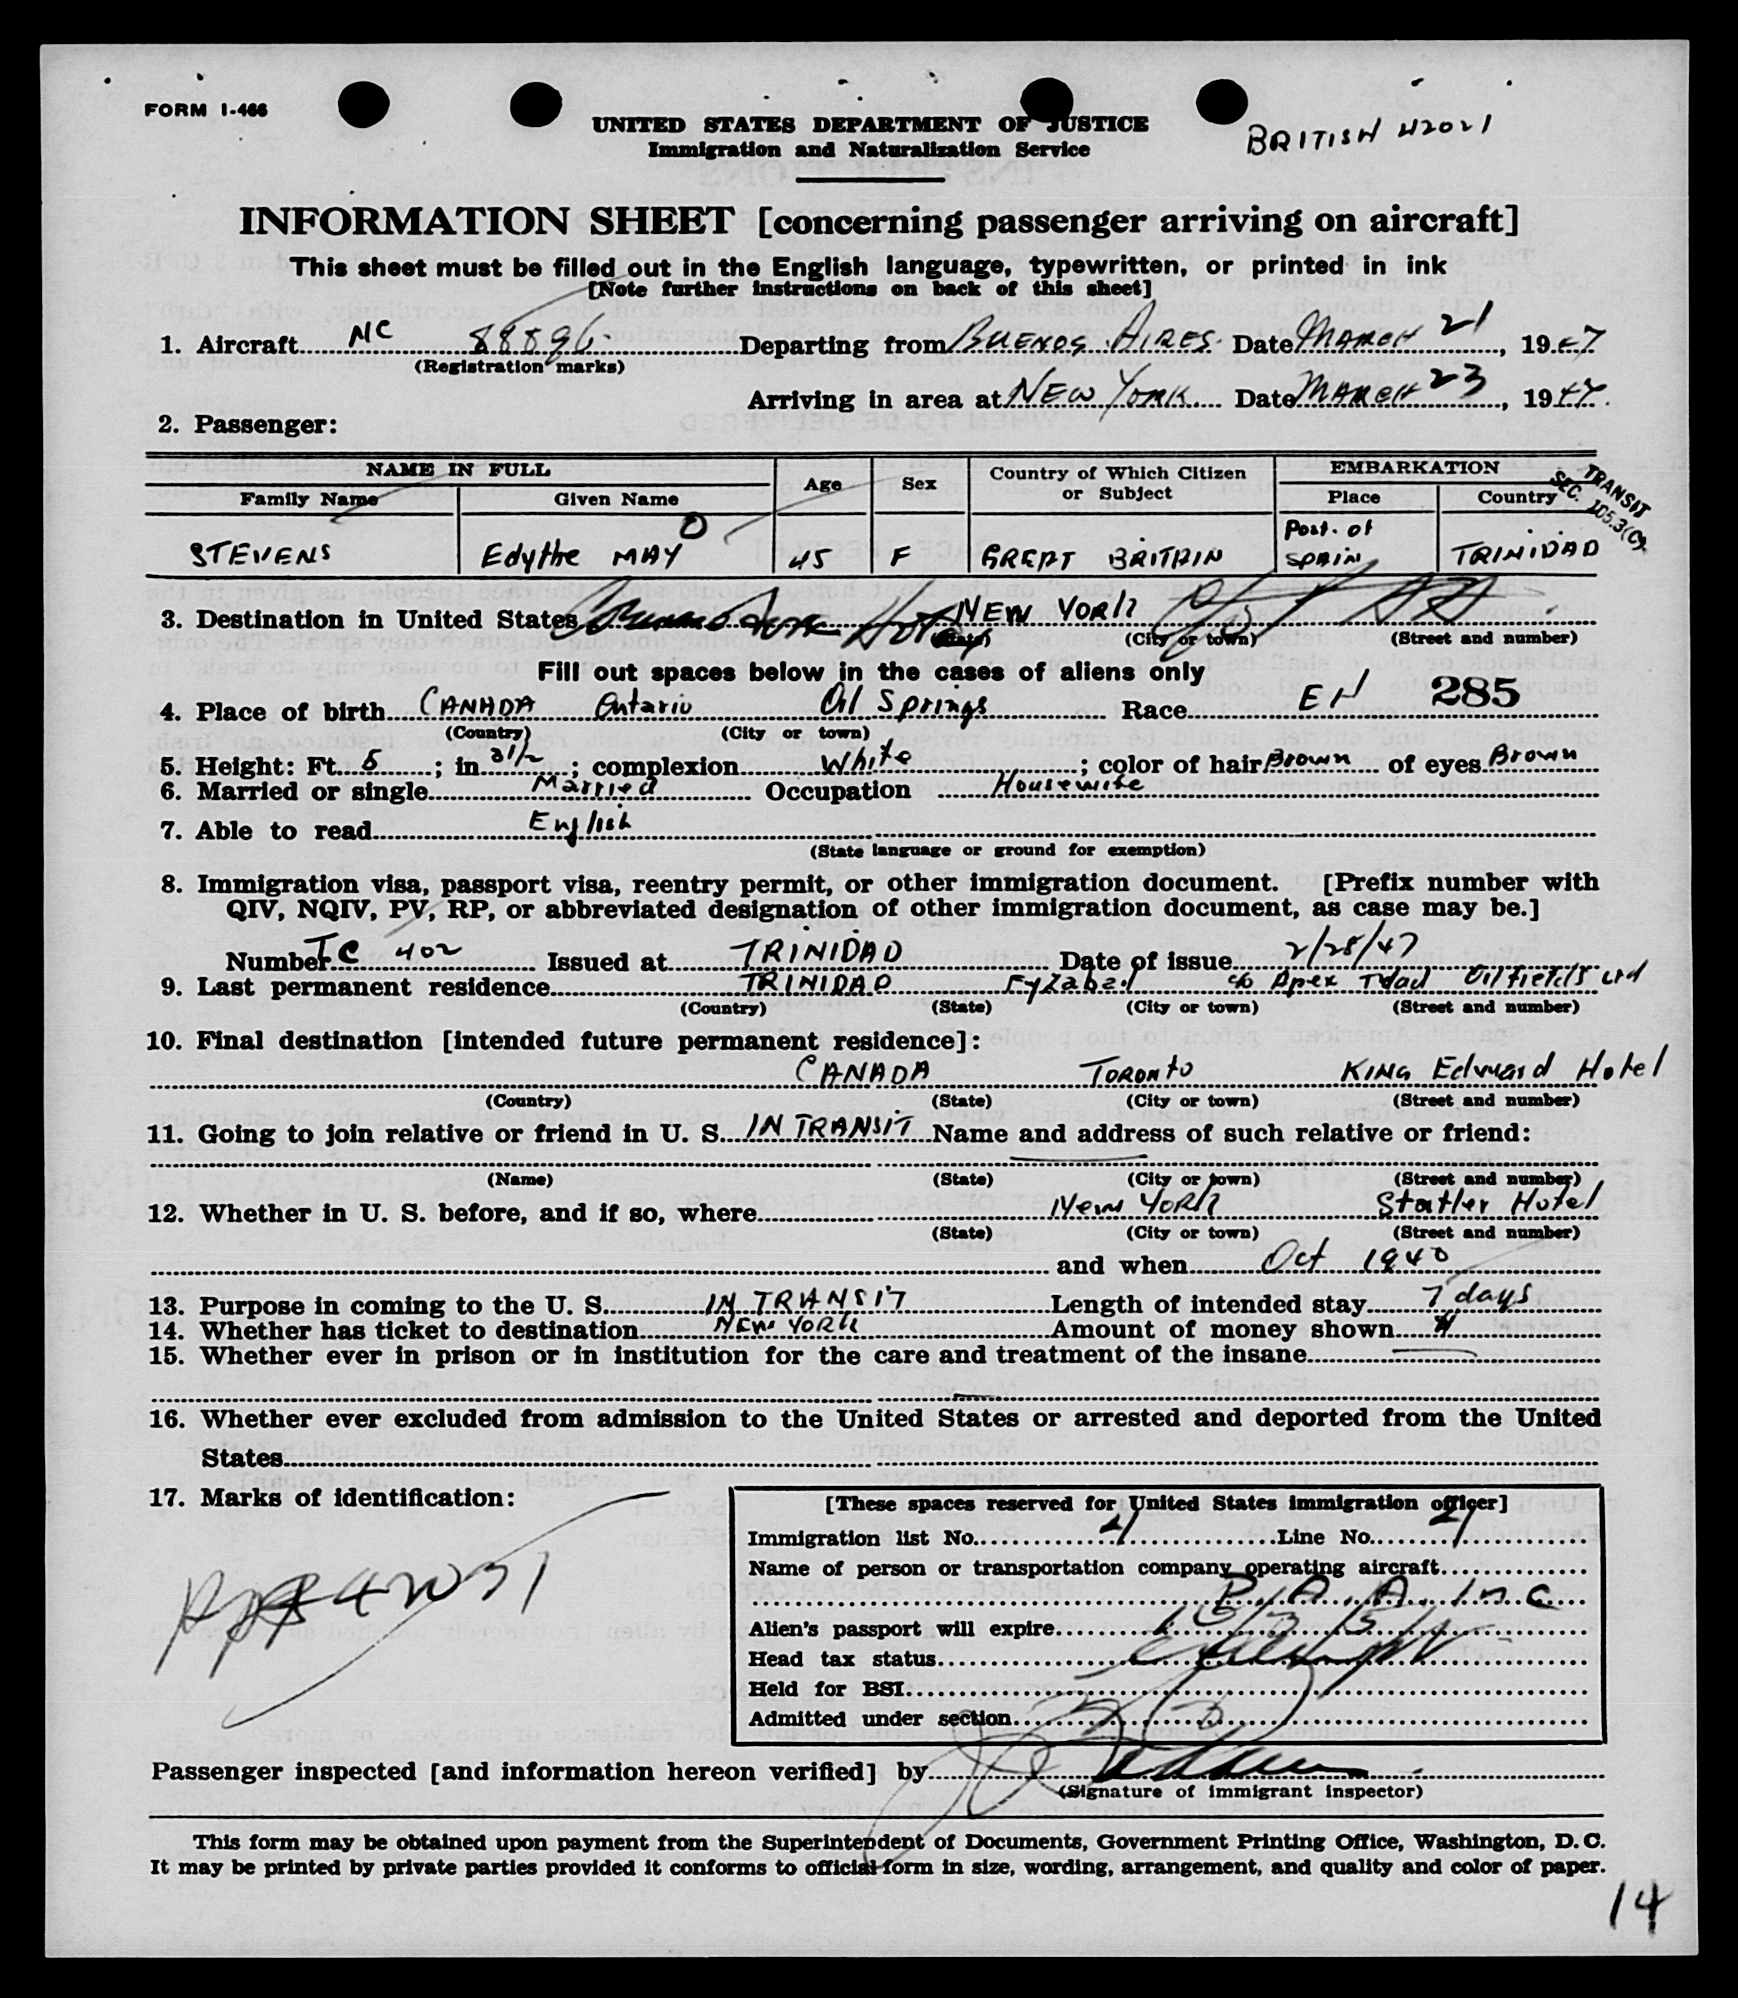 FORM I-466
UNITED STATES DEPARTMENT OF JUSTICE
Immigration and Naturalization Service
BRITISH 42021
INFORMATION SHEET [concerning passenger arriving on aircraft]
This sheet must be filled out in the English language, typewritten, or printed in ink
[Note further instructions on back of this sheet]
1. Aircraft NC 88896 Departing from BUENOS AIRES Date MARCH 21, 1947
(Registration marks)
Arriving in area at NEW YORK Date MARCH 23, 1947.
2. Passenger:
NAME IN FULL Age Sex Country of Which Citizen or Subject EMBARKATION
Family Name Given Name Place Country
TRANSIT
SEC. 105.3(C)
STEVENS Edythe MAY O 45 F GREAT BRITAIN Port of SPAIN TRINIDAD
3. Destination in United States NEW YORK
(State) (City or town) (Street and number)
Fill out spaces below in the cases of aliens only
4. Place of birth CANADA Ontario Oil Springs Race EH 285
(Country) (City or town)
5. Height: Ft. 5; in. 3 1/2; complexion White; color of hair Brown of eyes Brown
6. Married or single Married Occupation Housewife
7. Able to read English
(State language or ground for exemption)
8. Immigration visa, passport visa, reentry permit, or other immigration document. [Prefix number with
QIV, NQIV, PV, RP, or abbreviated designation of other immigration document, as case may be.]
Number TC 402 Issued at TRINIDAD Date of issue 2/28/47
9. Last permanent residence TRINIDAD Fyzabad c/o Apex Tdad Oilfields Ltd
(Country) (State) (City or town) (Street and number)
10. Final destination [intended future permanent residence]:
CANADA TORONTO KING Edward Hotel
(Country) (State) (City or town) (Street and number)
11. Going to join relative or friend in U. S. IN TRANSIT Name and address of such relative or friend:
(Name) (State) (City or town) (Street and number)
12. Whether in U. S. before, and if so, where New YORK Statler Hotel
(State) (City or town) (Street and number)
and when Oct 1940
13. Purpose in coming to the U. S. IN TRANSIT Length of intended stay 7 days
14. Whether has ticket to destination NEW YORK Amount of money shown
15. Whether ever in prison or in institution for the care and treatment of the insane
16. Whether ever excluded from admission to the United States or arrested and deported from the United
States
17. Marks of identification:
[These spaces reserved for United States immigration officer]
Immigration list No. 4 Line No. 21
Name of person or transportation company operating aircraft
P. A. A. Inc
Alien's passport will expire
Head tax status
Held for BSI
Admitted under section 3(3)
Passenger inspected [and information hereon verified] by
(Signature of immigrant inspector)
This form may be obtained upon payment from the Superintendent of Documents, Government Printing Office, Washington, D. C.
It may be printed by private parties provided it conforms to official form in size, wording, arrangement, and quality and color of paper.
14